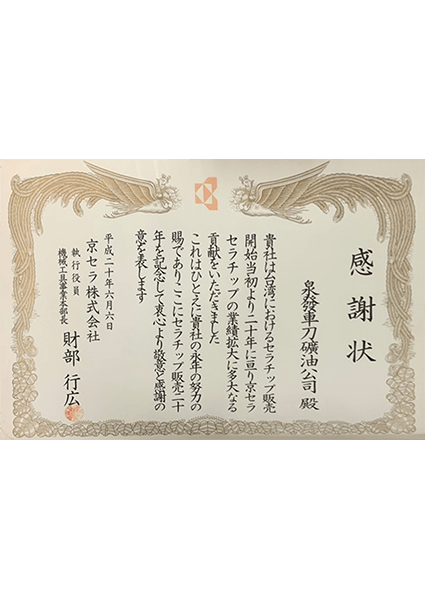 感謝状
泉發車刀礦油公司 殿
貴社は台湾におけるセラチップ販売
開始当初より二十年に亘り京セラ
セラチップの業績拡大に多大なる
貢献をいただきました
これはひとえに貴社の永年の努力の
賜でありここにセラチップ販売二十
年を記念して衷心より敬意と感謝の
意を表します
平成二十年六月六日
京セラ株式会社
執行役員
機械工具事業本部長
財部 行広